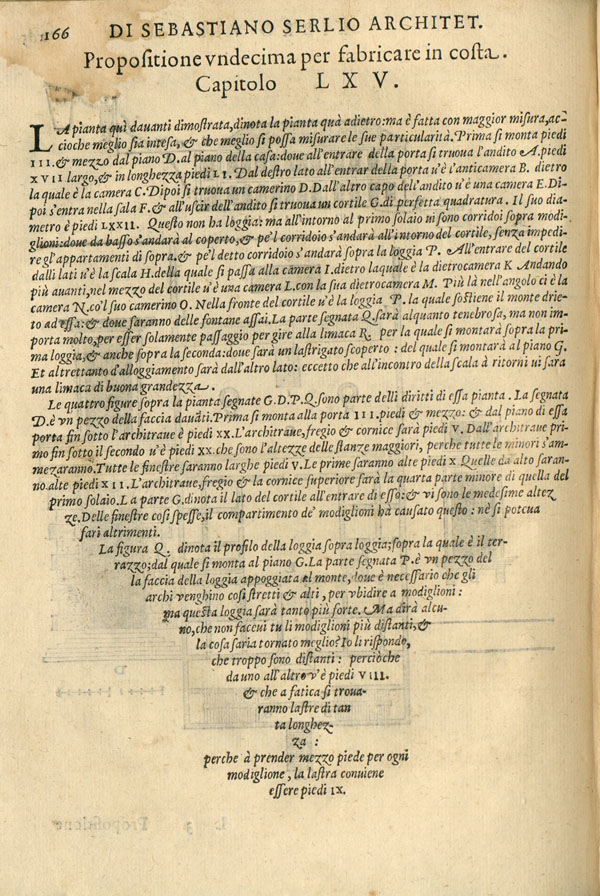 166 DI SEBASTIANO SERLIO ARCHITET.
Propositione vndecima per fabricare in costa.
Capitolo LXV.
LA pianta quì dauanti dimostrata, dinota la pianta quà adietro: ma è fatta con maggior misura, ac-
cioche meglio sia intesa, & che meglio si possa misurare le sue particularità. Prima si monta piedi
III. & mezzo dal piano D. al piano della casa: doue all'entrare della porta si truoua l'andito A. piedi
XVII largo, & in longhezza piedi LI. Dal destro lato all'entrar della porta u'è l'anticamera B. dietro
la quale è la camera C. Dipoi si truoua un camerino D. Dall'altro capo dell'andito u'è una camera E. Di-
poi s'entra nella sala F. & all'uscir dell'andito si truoua un cortile G. di perfetta quadratura. Il suo dia-
metro è piedi LXXII. Questo non ha loggia: ma all'intorno al primo solaio ui sono corridoi sopra modi-
glioni: doue da basso s'andarà al coperto, & pe'l corridoio s'andarà all'intorno del cortile, senza impedi-
re gl'appartamenti di sopra. & pe'l detto corridoio s'andarà sopra la loggia P. All'entrare del cortile
dalli lati u'è la scala H. della quale si passa alla camera I. dietro laquale è la dietrocamera K Andando
più auanti, nel mezzo del cortile u'è una camera L. con la sua dietrocamera M. Più là nell'angolo ci è la
camera N. co'l suo camerino O. Nella fronte del cortile u'è la loggia P. la quale sostiene il monte drie-
to ad essa: & doue saranno delle fontane assai. La parte segnata Q. sarà alquanto tenebrosa, ma non im-
porta molto, per esser solamente passaggio per gire alla limaca R. per la quale si montarà sopra la pri-
ma loggia, & anche sopra la seconda: doue sarà un lastrigato scoperto: del quale si montarà al piano G.
Et altrettanto d'alloggiamento sarà dall'altro lato: eccetto che all'incontro della scala à ritorni ui sara
una limaca di buona grandezza.
Le quattro figure sopra la pianta segnate G. D. P. Q. sono parte delli diritti di essa pianta. La segnata
D. è vn pezzo della faccia dauāti. Prima si monta alla porta III. piedi & mezzo: & dal piano di essa
porta fin sotto l'architraue è piedi XX. L'architraue, fregio & cornice sarà piedi V. Dall'architraue pri-
mo fin sotto il secondo u'è piedi XX. che sono l'altezze delle stanze maggiori, perche tutte le minori s'am-
mezaranno. Tutte le finestre saranno larghe piedi V. Le prime saranno alte piedi X Quelle da alto saran-
no alte piedi XII. L'architraue, fregio & la cornice superiore sarà la quarta parte minore di quella del
primo solaio. La parte G. dinota il lato del cortile all'entrare di esso: & vi sono le medesime altez
ze. Delle finestre cosi spesse, il compartimento de' modiglioni ha causato questo: nè si poteua
fari altrimenti.
La figura Q. dinota il profilo della loggia sopra loggia; sopra la quale è il ter-
razzo; dal quale si monta al piano G. La parte segnata P. è vn pezzo del
la faccia della loggia appoggiata al monte, doue è necessario che gli
archi venghino cosi stretti & alti, per vbidire a modiglioni:
ma questa loggia sarà tanto più forte. Ma dirà alcu-
no, che non faceui tu li modiglioni più distanti, &
la cosa saria tornato meglio? Io li rispondo,
che troppo sono distanti: perciòche
da uno all'altro v'è piedi VIII.
& che a fatica si troua-
ranno lastre di tan
ta longhez-
za:
perche à prender mezzo piede per ogni
modiglione, la lastra conuiene
essere piedi IX.
L 3 Propositione